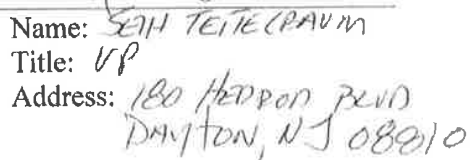 Name: SETH TEITELBAUM
Title: VP
Address: 180 HERROD BLVD
DAYTON, NJ 08810